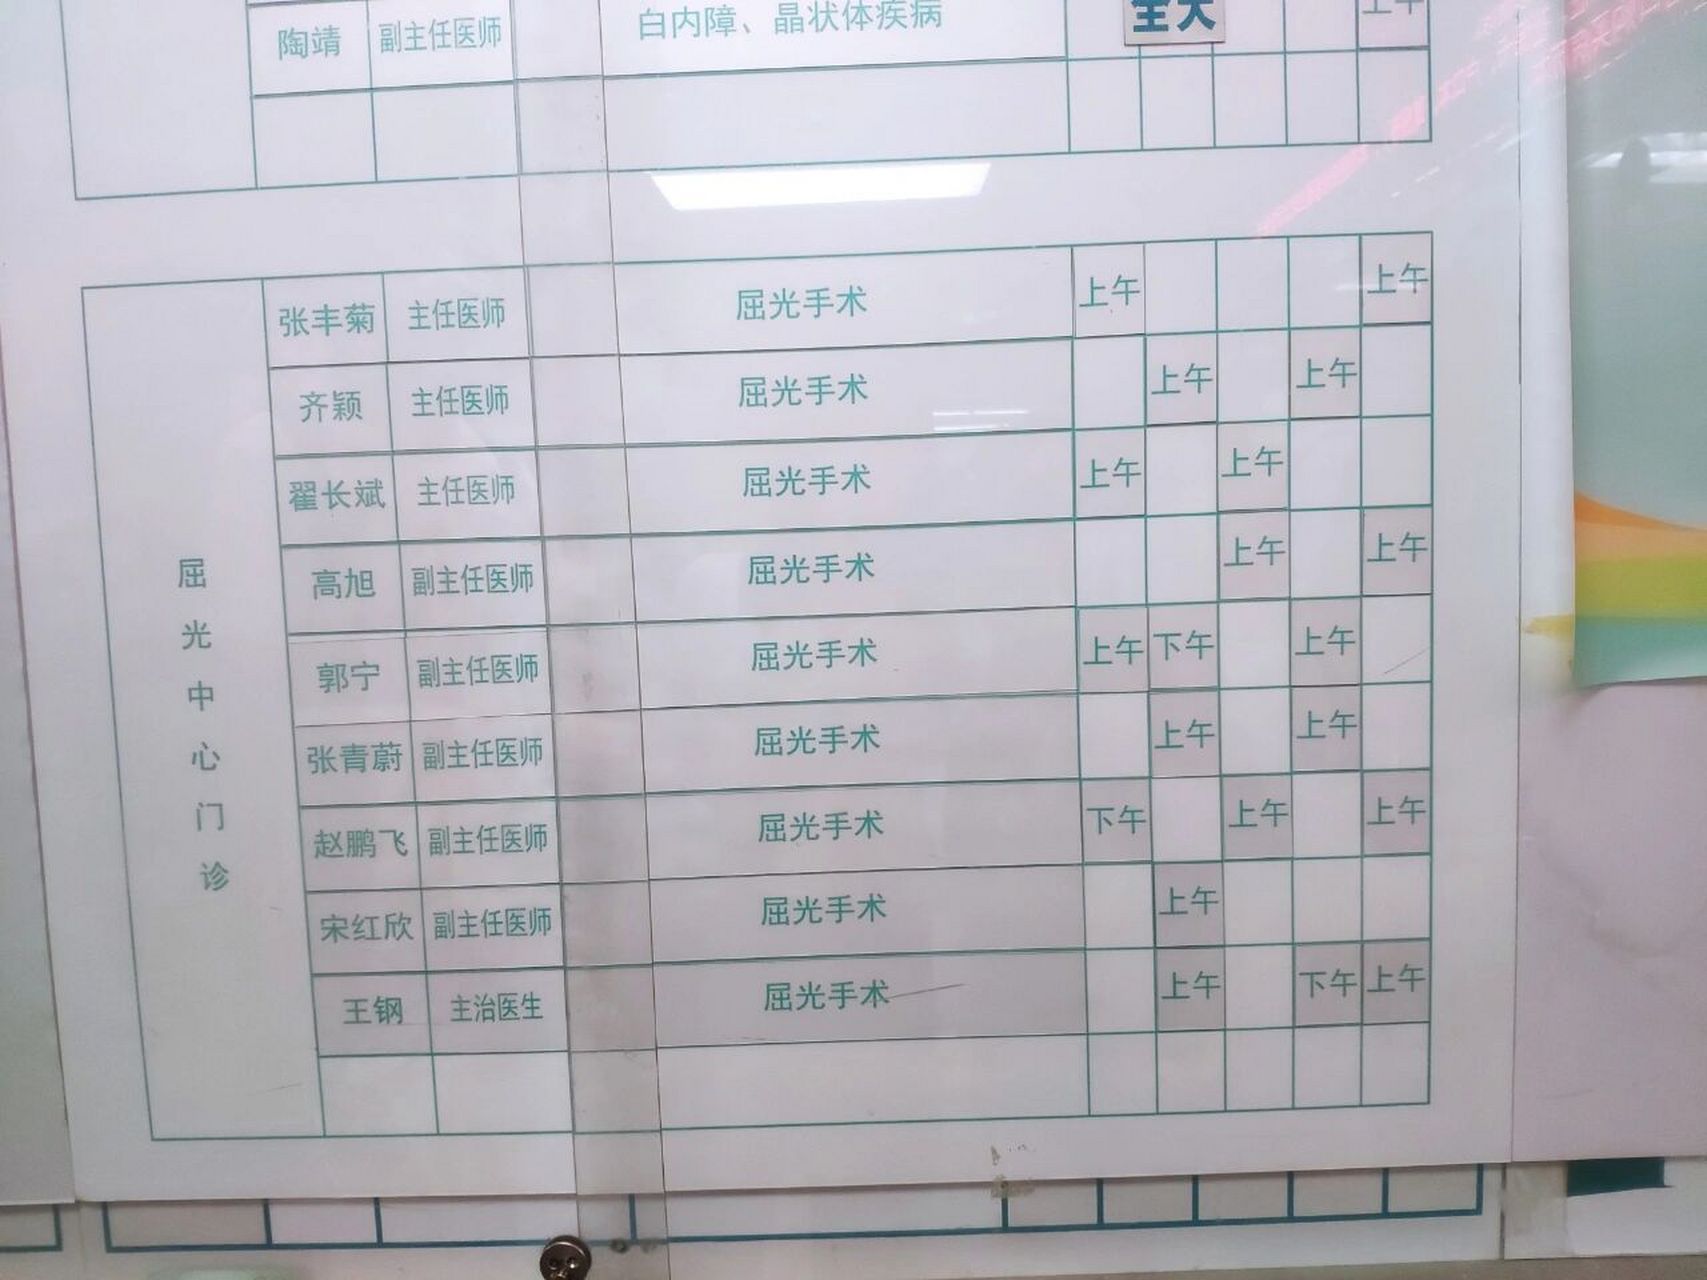 陶靖 副主任医师 白内障、晶状体疾病 全天 上午
屈光中心门诊
张丰菊 主任医师 屈光手术 上午 上午
齐颖 主任医师 屈光手术 上午 上午
翟长斌 主任医师 屈光手术 上午 上午
高旭 副主任医师 屈光手术 上午 上午
郭宁 副主任医师 屈光手术 上午 下午 上午
张青蔚 副主任医师 屈光手术 上午 上午
赵鹏飞 副主任医师 屈光手术 下午 上午 上午
宋红欣 副主任医师 屈光手术 上午
王钢 主治医生 屈光手术 上午 下午 上午